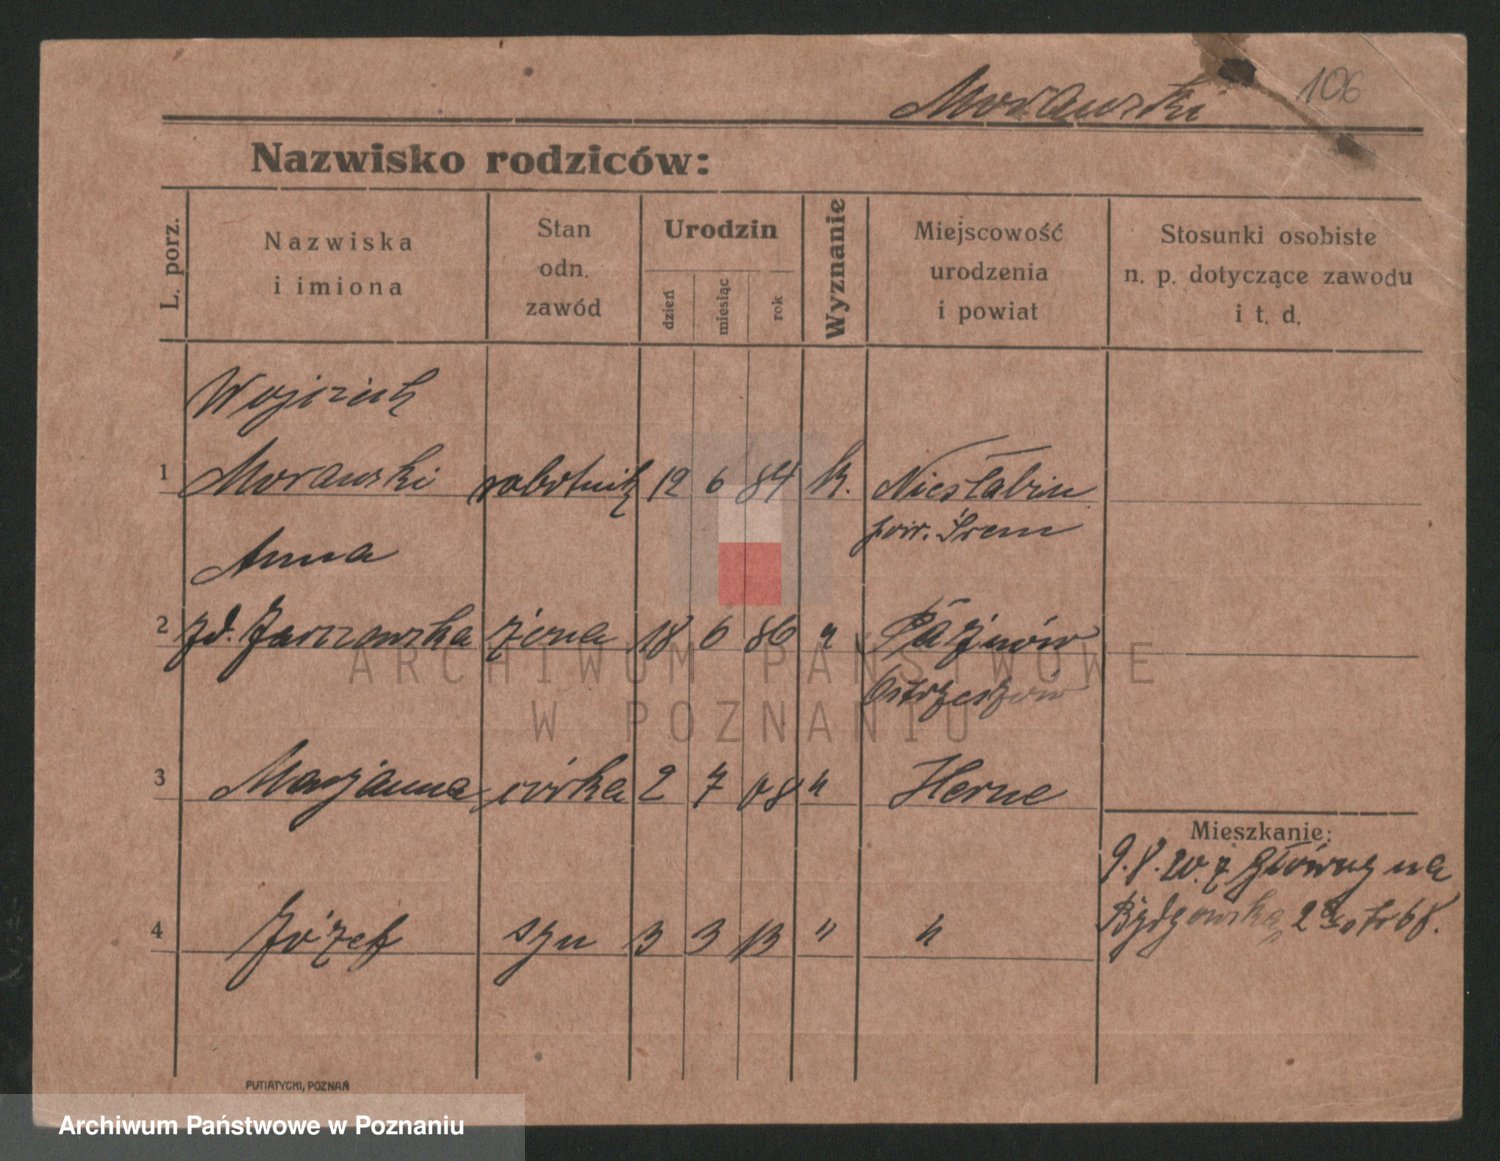 Morawski 106
Nazwisko rodziców:
L. porz.
Nazwiska
i imiona
Stan
odn.
zawód
Urodzin
dzień
miesiąc
rok
Wyznanie
Miejscowość
urodzenia
i powiat
Stosunki osobiste
n. p. dotyczące zawodu
i t. d.
Wojciech
1 Morawski robotnik 12 6 84 k. Niesłabin
pow. Śrem
Anna
2 żona 18 6 86 "
Ostrzeszów
3 Marjanna córka 2 7 08 " Herne
Mieszkanie:
9.8.20. z Główny na
Bydgowska 2
4 Józef syn 3 3 13 " "
ARCHIWUM PAŃSTWOWE
W POZNANIU
PUTIATYCKI, POZNAŃ
Archiwum Państwowe w Poznaniu